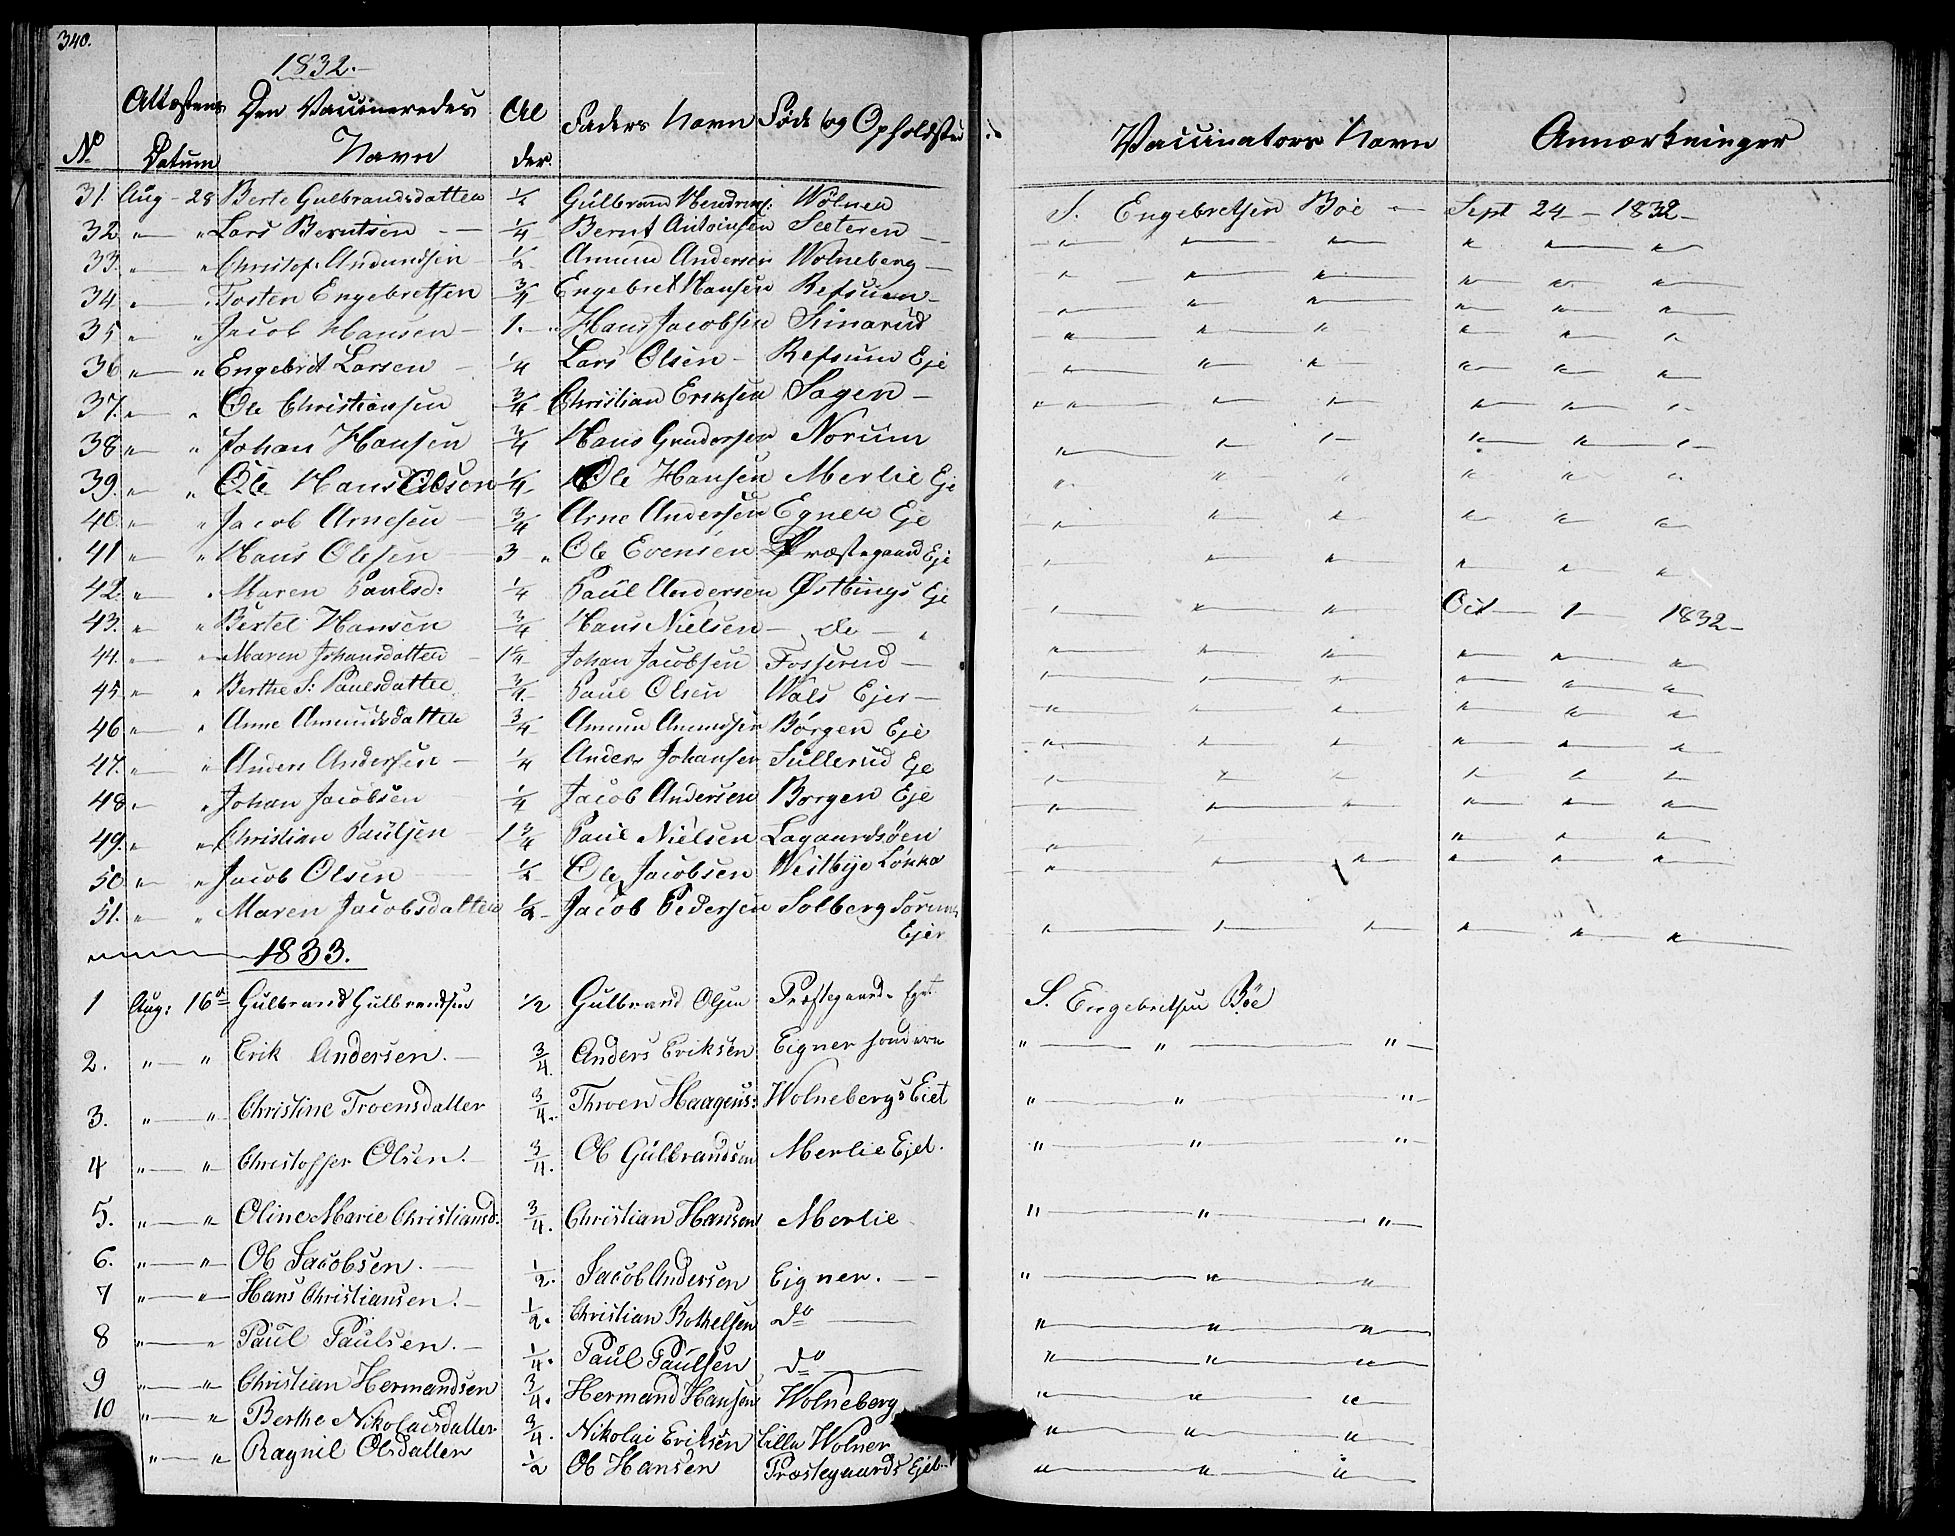 340.
1832.
No Attestens Datum Den Vaccineredes Navn Alder Faders Navn Føde og Opholdsted Vaccinators Navn Anmærkninger
31. Aug - 28 Berte Gulbrandsdatter 1/2 Gulbrand Hendrens: Wølner S. Engebretsen Boe — Sept 24 - 1832 -
32 " " Lars Berntsen - - 1/4 Bernt Antoinsen Seeteren - " " " " " "
33. " " Christof. Amundsen - 1/2 Amund Andersen Wolneberg - " " " " " "
34 " " Tosten Engebretsen 3/4 Engebret Hansen Refsum - " " " " " "
35 " " Jacob Hansen - 1. " Hans Jacobsen Simarud " " " " " "
36 " " Engebret Larsen - 1/4 Lars Olsen - Refsum Eje " " " " " "
37. " " Ole Christiansen 3/4 Christian Eriksen Sagen - " " " " " "
38 " " Johan Hansen 3/4 Hans Gundersen Norum " " " " " "
39. " " Ole Hans Olsen 1/4 Ole Hansen Merlie Eje " " " " " "
40. " " Jacob Arnesen - 3/4 Arne Andersen Egner Eje " " " " " "
41 " " Hans Olesen - 3 " Ole Evensen Præstegaard Eje " " " " " "
42. " " Maren Paulsd: 1/4 Paul Andersen Østbings Eje " " " Oct - 1 - 1832 -
43. " " Bertel Hansen 3/4 Hans Nielsen - de - " " " " " " "
44. " " Maren Johansdatter - 1 1/4 Johan Jacobsen Fosserud - " " " " " "
45 " " Berthe S: Paulsdatter 3/4 Paul Olsen Wals Ejer - " " " " " "
46 " " Anne Amundsdatter 3/4 Amund Amundsen Børgen Eje " " " " " "
47. " " Anders Andersen - 1/4 Anders Johansen Sullerud Eje " " " " " "
48. " " Johan Jacobsen 1/4 Jacob Andersen Borgen Eje " " " " " "
49. " " Christian Paulsen - 1 3/4 Paul Nielsen Lagaardsøen " " " " " "
50 " " Jacob Olsen - 1/2 Ole Jacobsen Westbye Løkka " " " " " "
51. " " Maren Jacobsdatter 1/2 Jacob Pedersen Solberg Sorums Ejer " " " " " "
1833.
1 Aug: 16de Gulbrand Gulbrandsen 1/2 Gulbrand Olsen Præstegaards Eget S. Engebretsen Böe
2. " " Erik Andersen. - 3/4 Anders Eriksen Eigner søndern " " "
3. " " Christine Troensdatter 3/4. Throen Haagens: Wolnebergs Eiet " " "
4 " " Christoffer Olsen. - 3/4. Ob Gulbrandsen Merlie Ejet. " " "
5. " " Oline Marie Christiansd: 3/4. Christian Hansen Merlie " " "
6. " " Ob Jacobsen. - 1/2. Jacob Andersen Eigner. - - " " "
7 " " Hans Christiansen. - 1/2. Christian Bothelsen do " " "
8 " " Paul Paulsen. - 1/4. Paul Paulsen do " " "
9 " " Christian Hermandsen 3/4. Hermand Hansen Wolneberg " " "
10 " " Berthe Nikolaisdatter 3/4. Nikolai Eriksen Lille Wolner " " "
" " Ragnil Olsdatter 1/2 Ob Hansen Præstegaards Ejet. " " "